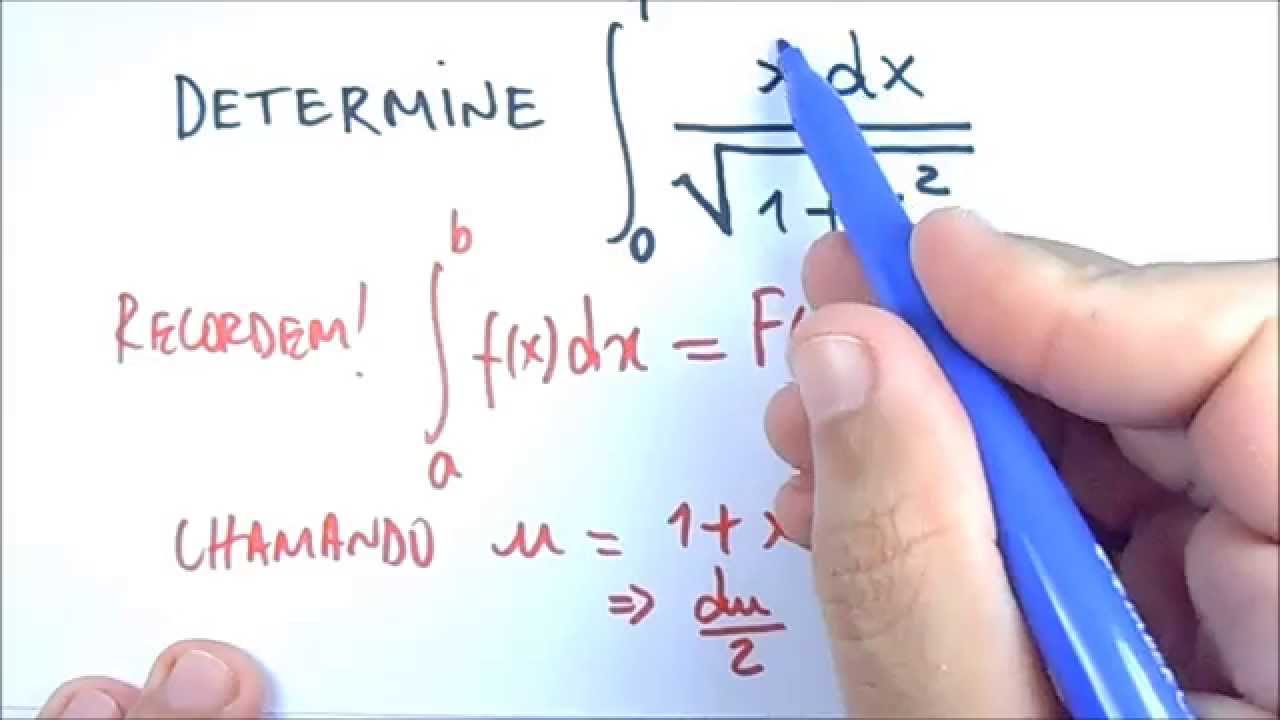 DETERMINE ∫₀ x dx / √1+ ²
RECORDEM! ∫ₐᵇ f(x)dx = F(
CHAMANDO u = 1+x
⇒ du/2